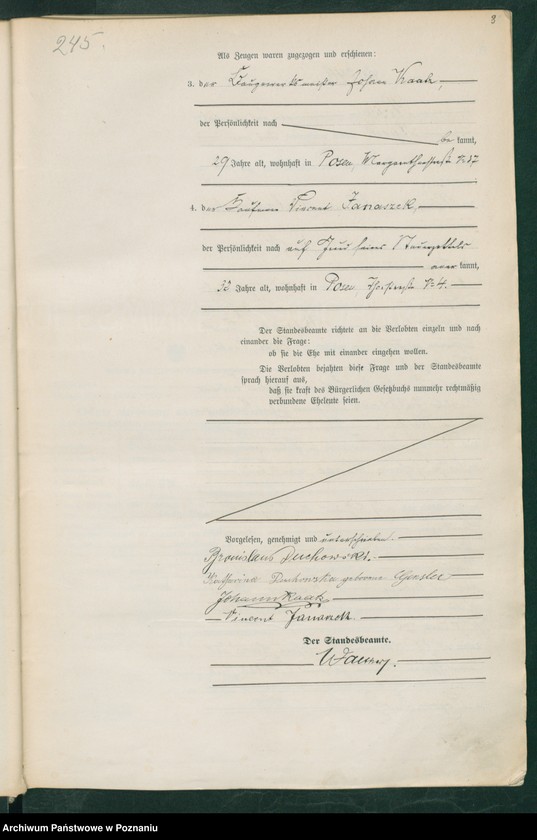 8
245.
Als Zeugen waren zugezogen und erschienen:
3. der Baugewerksmeister Johann Kaatz,
der Persönlichkeit nach
be kannt,
29 Jahre alt, wohnhaft in Posen, Margarethenstr № 37
4. der Kaufmann Vincent Janaszek,
der Persönlichkeit nach auf Grund seines Steuerzettels
aner kannt,
33 Jahre alt, wohnhaft in Posen, № 4.
Der Standesbeamte richtete an die Verlobten einzeln und nach
einander die Frage:
ob sie die Ehe mit einander eingehen wollen.
Die Verlobten bejahten diese Frage und der Standesbeamte
sprach hierauf aus,
daß sie kraft des Bürgerlichen Gesetzbuchs nunmehr rechtmäßig
verbundene Eheleute seien.
Vorgelesen, genehmigt und unterschrieben.
Bronislaus Duchowski.
Duchowska geborene Gensler
Johann Kaatz
Vincent Janaszek
Der Standesbeamte.
Archiwum Państwowe w Poznaniu